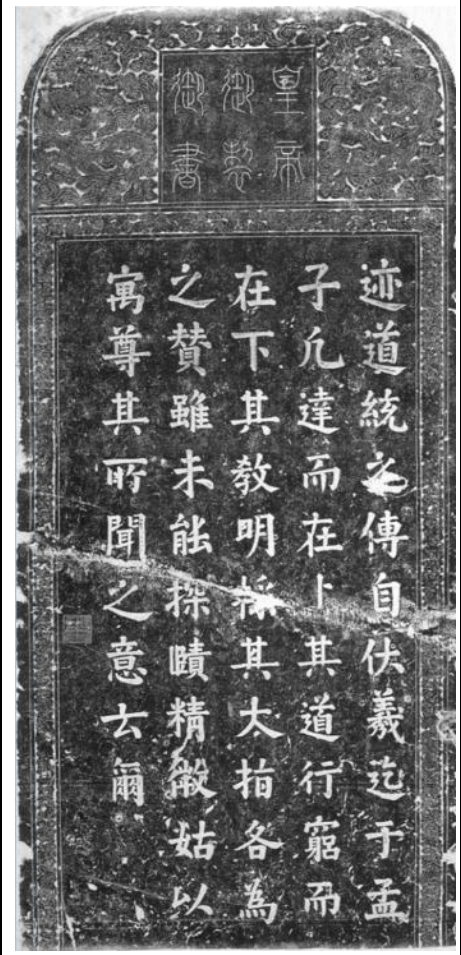 皇帝
御製
御書
迹道統之傳自伏羲迄于孟
子凡達而在上其道行窮而
在下其教明採其大指各為
之賛雖未能探賾精微姑以
寓尊其所聞之意云爾